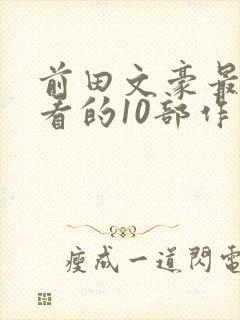 前田文豪最
者的10部作
瘦成一道閃電